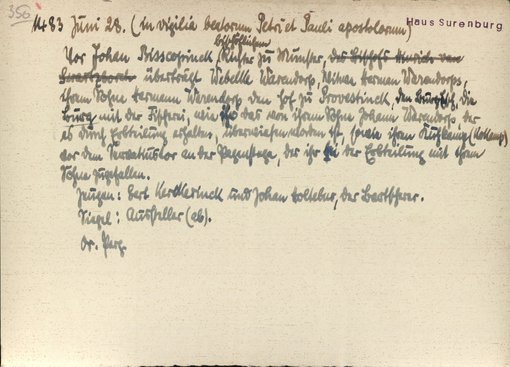 356
Haus Surenburg
1483 Juni 28. (in vigilia beatorum Petri et Pauli apostolorum)
bischöflichen
Vor Johan Bisscopinck, Richter zu Münster, des Bischofs Heinrich von
überträgt Wibelle Warendorp, Witwe Herman Warendorps,
ihrem Sohne Hermann Warendorp den Hof zu Provestinck, den Burghof, die
Burg mit der Fischerei, wie das von ihrem Sohne Johann Warendorp, der
es durch Erbteilung erhalten, überwiesen worden ist, sowie ihren Kuhkamp
vor dem Servatiustor an der Pagenstege, der ihr bei der Erbteilung mit ihrem
Sohne zugefallen.
Zeugen: Bert Kerckerinck und Johan Holtebur, der Bartscherer.
Siegel: Aussteller (ab).
Or. Perg.